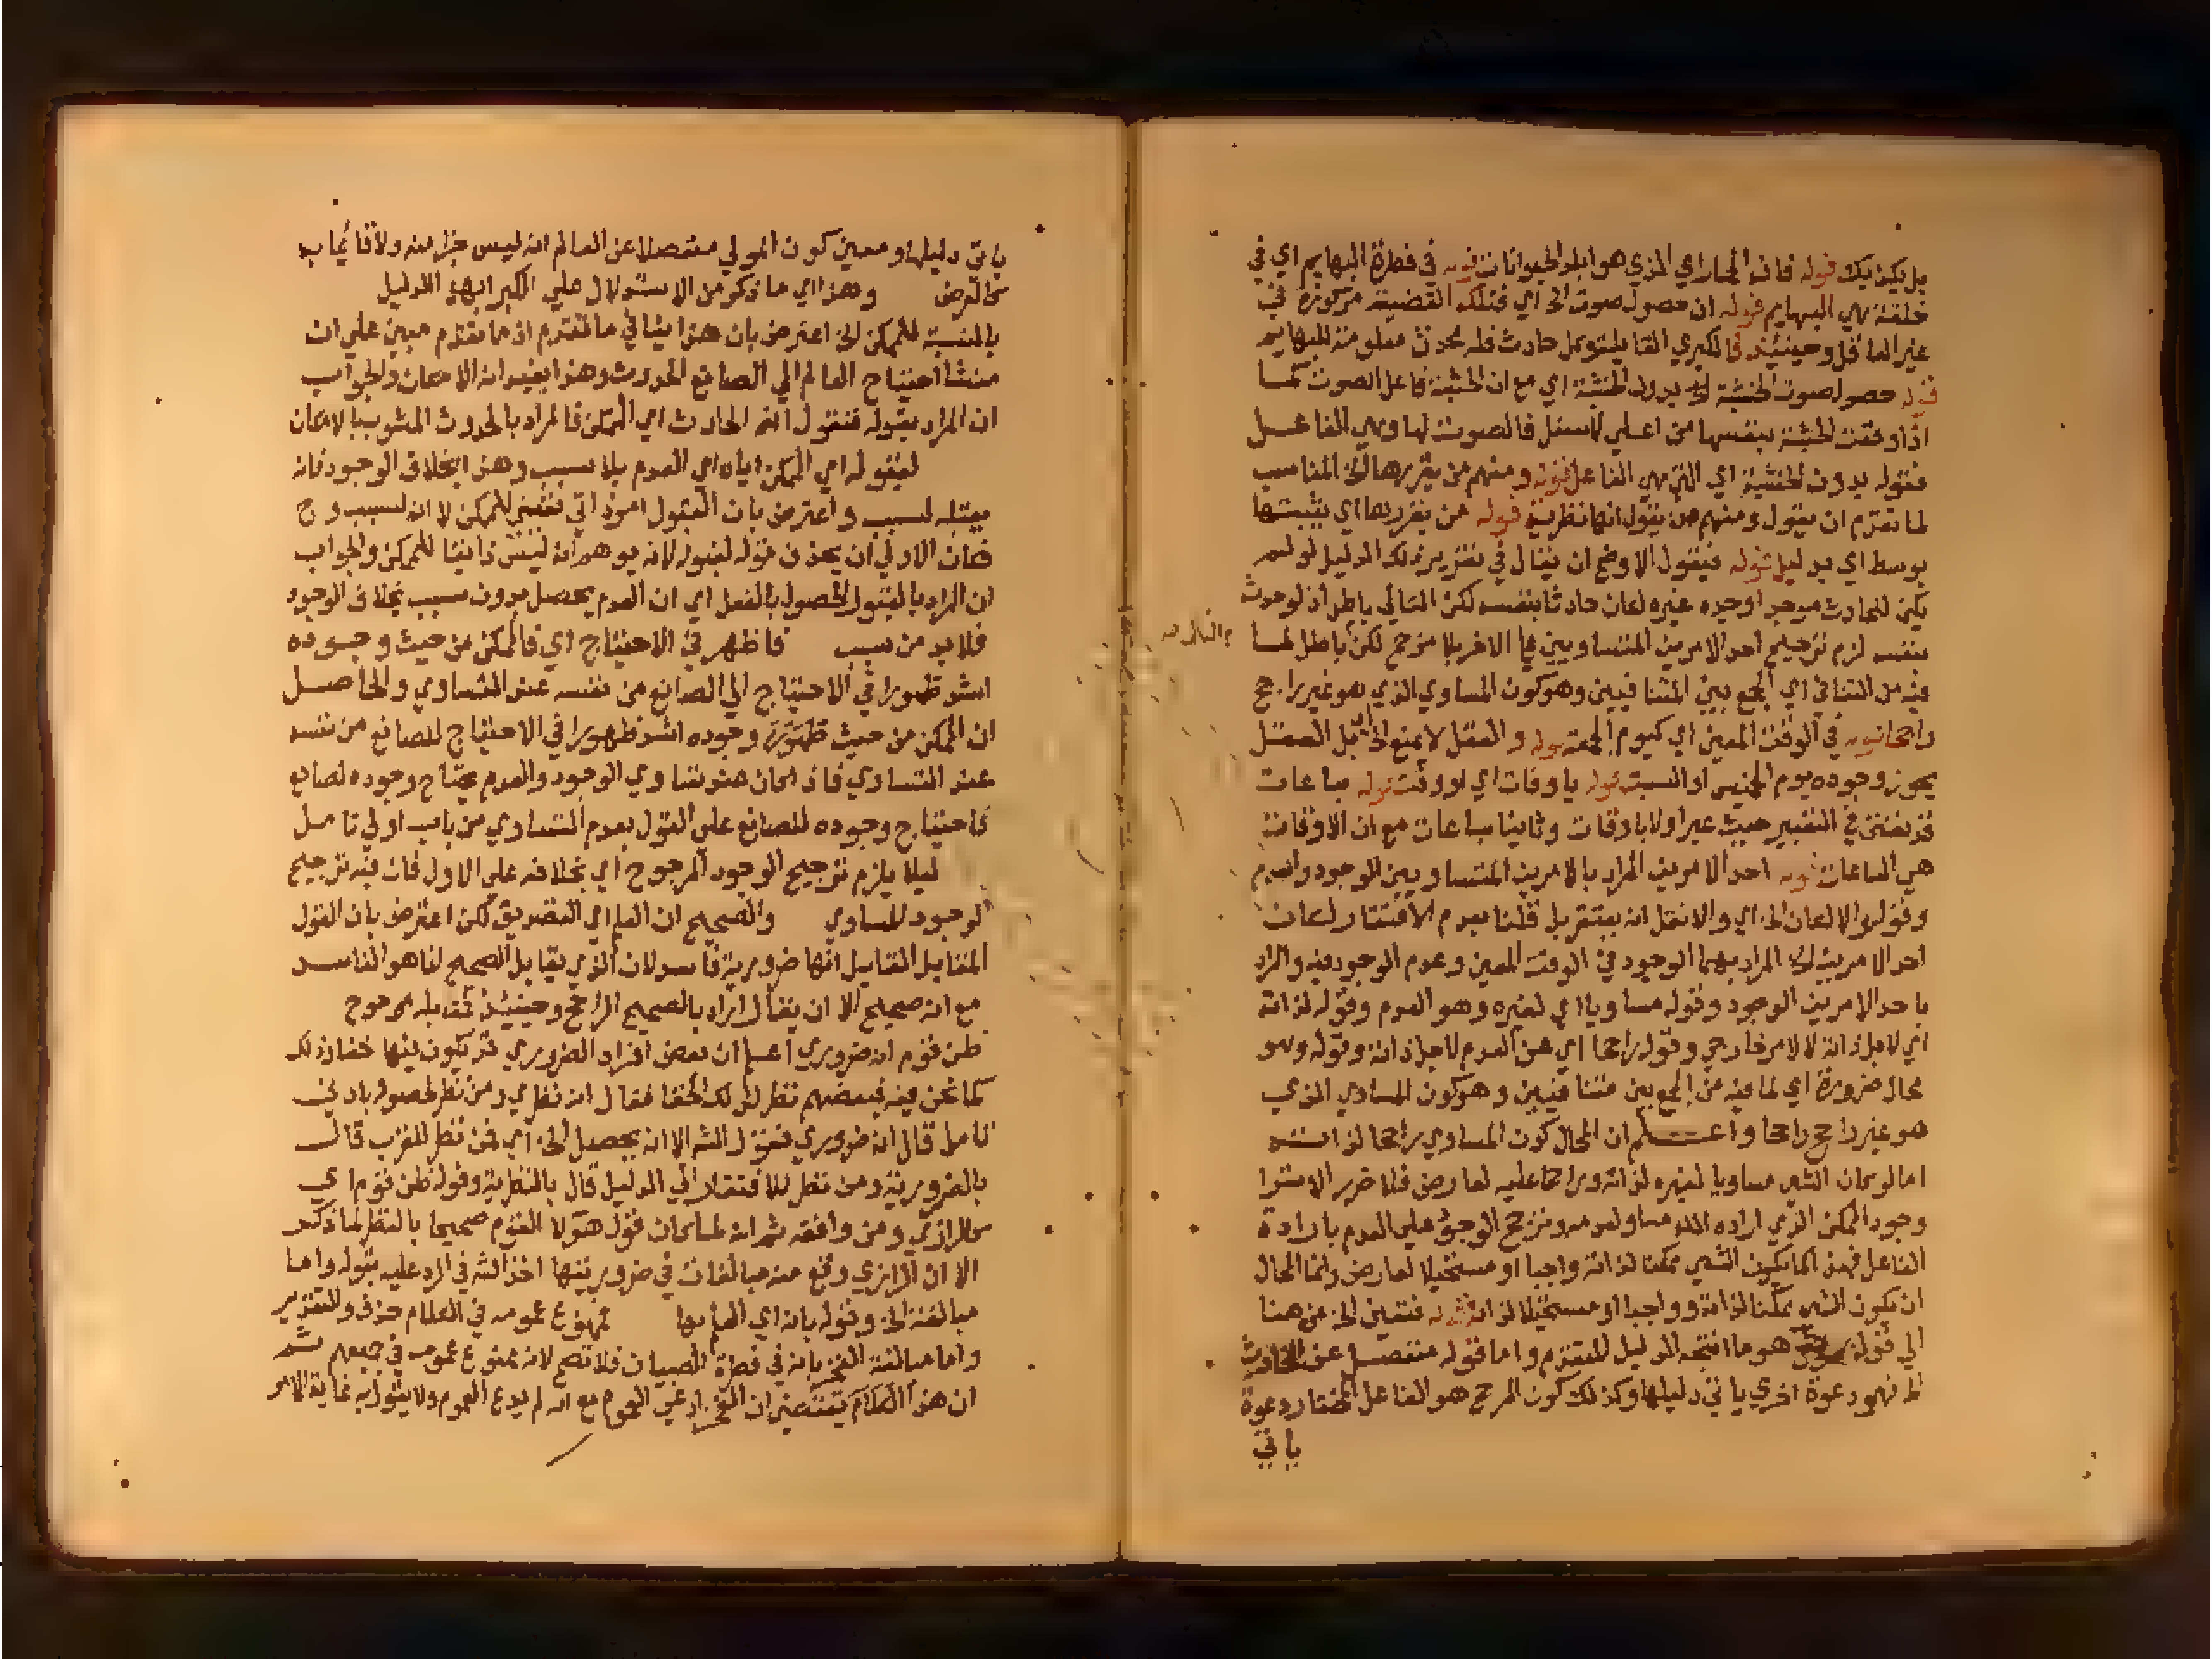 بل يكذبك قوله فان الحمار اي الذي هو ابلد الحيوانات قوله في فطرة البهايم اي في
خلقة هي البهايم قوله ان حصول صوت الخ اي فتلك القضية مركوزة في
غير العاقل وحينئذ فالكبري القايلة وكل حادث فله محدث معلومة للبهايم
قوله حصول صوت الخشبة الخ بدون الخشبة اي مع ان الخشبة فاعل الصوت كما
اذا وقعت الخشبة بنفسها من اعلي لاسفل فالصوت لها وهي الفاعل
فقوله بدون الخشبة اي التي هي الفاعل قوله ومنهم من يقررها الخ المناسب
لما تقدم ان يقول ومنهم من يقول انها نظرية قوله من يقررها اي يثبتها
بوسط اي بدليل قوله فيقول الاوضح ان يقال في تقرير ذلك الدليل لو لم
يكن للحادث موجد اوجده غيره لكان حادثا بنفسه لكن التالي باطل اذ لو حدث
بنفسه لزم ترجيح احد الامرين المتساويين علي الاخر بلا مرجح لكن باطل لما
التالي
فيه من التنافي اي الجمع بين المتنافيين وهو كون المساوي الذي هو غير راجح
راجحا قوله في الوقت المعين اي كيوم الجمعة قوله والعقل لا يمنع الخ اي بل العقل
يجوز وجوده يوم الخميس او السبت قوله باوقات اي او وقت قوله بساعات
قد تفنن في التعبير حيث عبر اولا باوقات وثانيا بساعات مع ان الاوقات
هي الساعات قوله احد الامرين المراد بالامرين المتساويين الوجود والعدم
وقوله والا لكان الخ اي والا نقل انه يفتقر بل قلنا بعدم الافتقار لكان
احد الامرين الخ المراد بهما الوجود في الوقت المعين وعدم الوجود فيه والمراد
باحد الامرين الوجود وقوله مساويا اي لغيره وهو العدم وقوله لذاته
اي لاجل ذاته لا لامر خارجي وقوله راجحا اي عن العدم لاجل ذاته وقوله وهو
محال ضرورة اي لما فيه من الجمع بين متنافيين وهو كون المساوي الذي
هو غير راجح راجحا واعلم ان المحال كون المساوي راجحا لذاته
اما لو كان الشي مساويا لغيره لذاته وراجحا عليه لعارض فلا ضرر الا ترا
وجود الممكن الذي اراده الله مساو لعدمه وترجح الوجود علي العدم بارادة
الفاعل فهذا كما يكون الشي ممكنا لذاته واجبا او مستحيلا لعارض وانما المحال
ان يكون الشي ممكنا لذاته وواجبا او مستحيلا لذاته قوله فتعين الخ من هنا
الي قوله هو ما انتجه الدليل المتقدم واما قوله منفصل عن الحادث
فهو دعوة اخري ياتي دليلها وكذلك كون المرجح هو الفاعل المختار دعوة
ياتي
ياتي دليلها ومعني كون المولي منفصلا عن العالم انه ليس جزا منه ولا قائما به
كالعرض وهذا اي ما ذكر من الاستدلال علي الكبرا بهذا الدليل
بالنسبة للممكن الخ اعترض بان هذا ينافي ما تقدم اذ ما تقدم مبين علي ان
منشا احتياج العالم الي الصانع الحدوث وهذا يفيد انه الامكان والجواب
ان المراد بقوله فنقول الخ الحادث اي الممكن فالمراد بالحدوث المشوب بالامكان
لقبوله اي الممكن اياه اي العدم بلا سبب وهذا بخلاف الوجود فانه
يقبله لسبب واعترض بان القبول امر ذاتي نفسي للممكن لا انه لسبب وح
فكان الاولي ان يحذف قوله لقبوله لانه يوهم انه ليس ذاتيا للممكن والجواب
ان المراد بالقبول الحصول بالفعل اي ان العدم يحصل بدون سبب بخلاف الوجود
فلا بد من سبب فاظهر في الاحتياج اي فالممكن من حيث وجوده
اشد ظهورا في الاحتياج الي الصانع من نفسه عند التساوي والحاصل
ان الممكن من حيث وجوده اشد ظهورا في الاحتياج للصانع من نفسه
عند التساوي فاذا كان عند تساوي الوجود والعدم يحتاج وجوده لصانع
فاحتياج وجوده للصانع علي القول بعدم التساوي من باب اولي تامل
ليلا يلزم ترجيح الوجود المرجوح اي بخلافه علي الاول فان فيه ترجيح
الوجود المساوي والصحيح ان العلم اي التصديق لكن اعترض بان القول
المقابل القايل انها ضرورية فاسد لان الذي يقابل الصحيح انما هو الفاسد
مع انه صحيح الا ان يقال اراد بالصحيح الراجح وحينئذ فمقابله مرجوح
ظن قوم انه ضروري اعلم ان بعض افراد الضروري قد يكون فيها خفا وذلك
كما نحن فيه فبعضهم نظر لذلك الخفا فقال انه نظري ومن نظر لحصوله بادني
تامل قال انه ضروري فقول الشه الا انه يحصل الخ اي فمن نظر للقرب قال
بالضرورية ومن نظر للافتقار الي الدليل قال بالنظرية وقوله ظن قوم اي
كالرازي ومن وافقه ثم انه لما كان قول هولا القوم صحيحا بالنظر لما ذكر
الا ان الرازي وقع منه مبالغات في ضروريتها اخذ الشه في الرد عليه بقوله واما
مبالغة الخ وقوله بانه اي العلم بها فممنوع عمومه في الكلام حذف والتقدير
واما مبالغة الفخر بانه في فطرة الصبيان فلا تصح لانه ممنوع عمومه في جميعهم ثم
ان هذا الكلام يقتضي ان الفخر ادعي العموم مع انه لم يدع العموم ولا يقول به غاية الامر